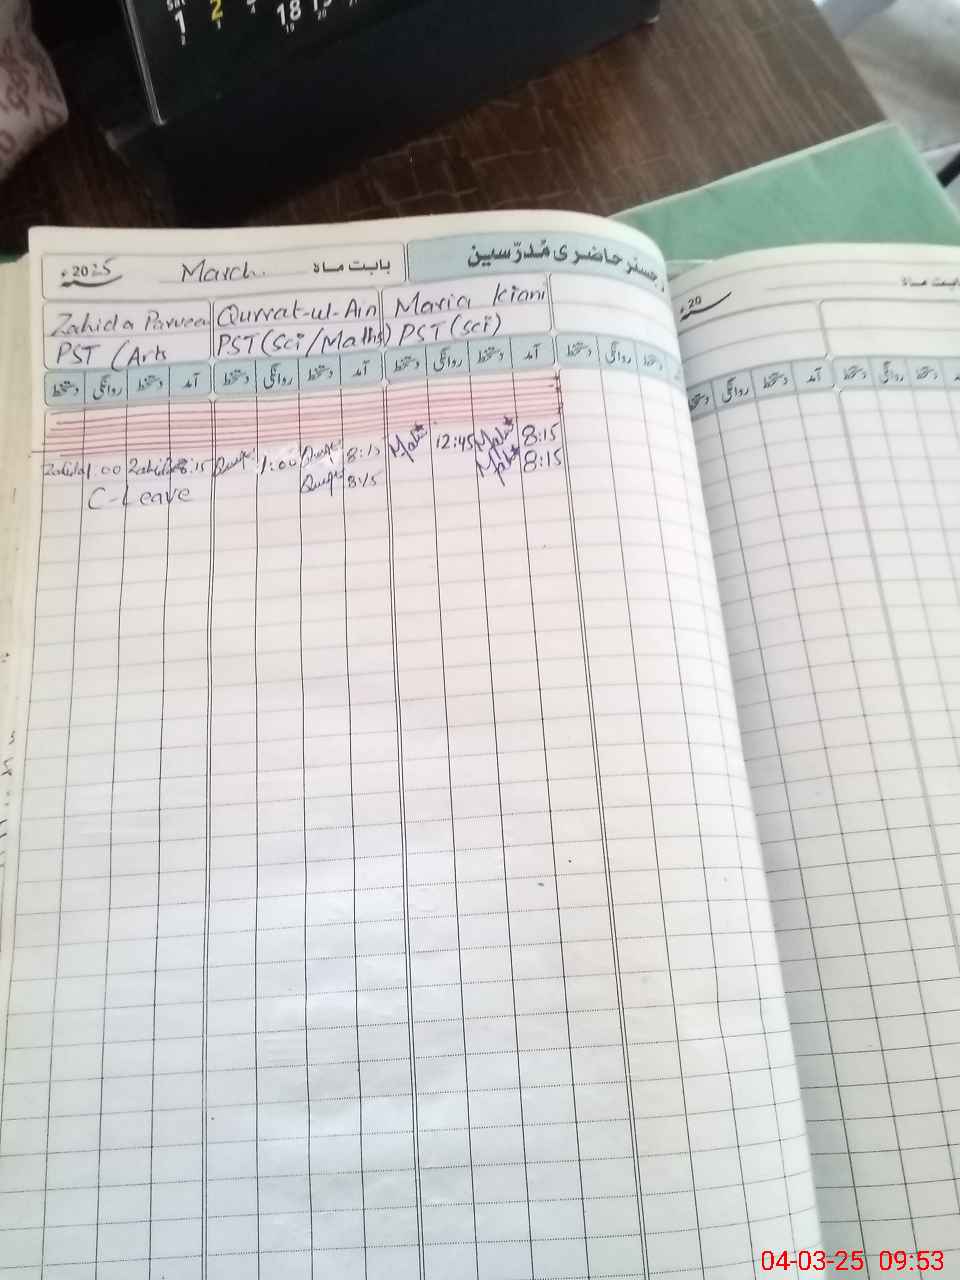 Sat
1 2 4 18
2 3 19 20
رجسٹر حاضری مُدرّسین
بابت ماہ March. 2025ء
Zahida Parveen Qurrat-ul-Ain Maria Kiani
PST (Arts PST (Sci/Maths) PST (Sci)
دستخط روانگی دستخط آمد دستخط روانگی دستخط آمد دستخط روانگی دستخط آمد دستخط روانگی دستخط
Zahida 1:00 Zahida 8:15 1:00 8:15 12:45 8:15
C-Leave 8:15 8:15
بابت ماہ 20
دستخط روانگی دستخط آمد دستخط روانگی دستخط
04-03-25 09:53